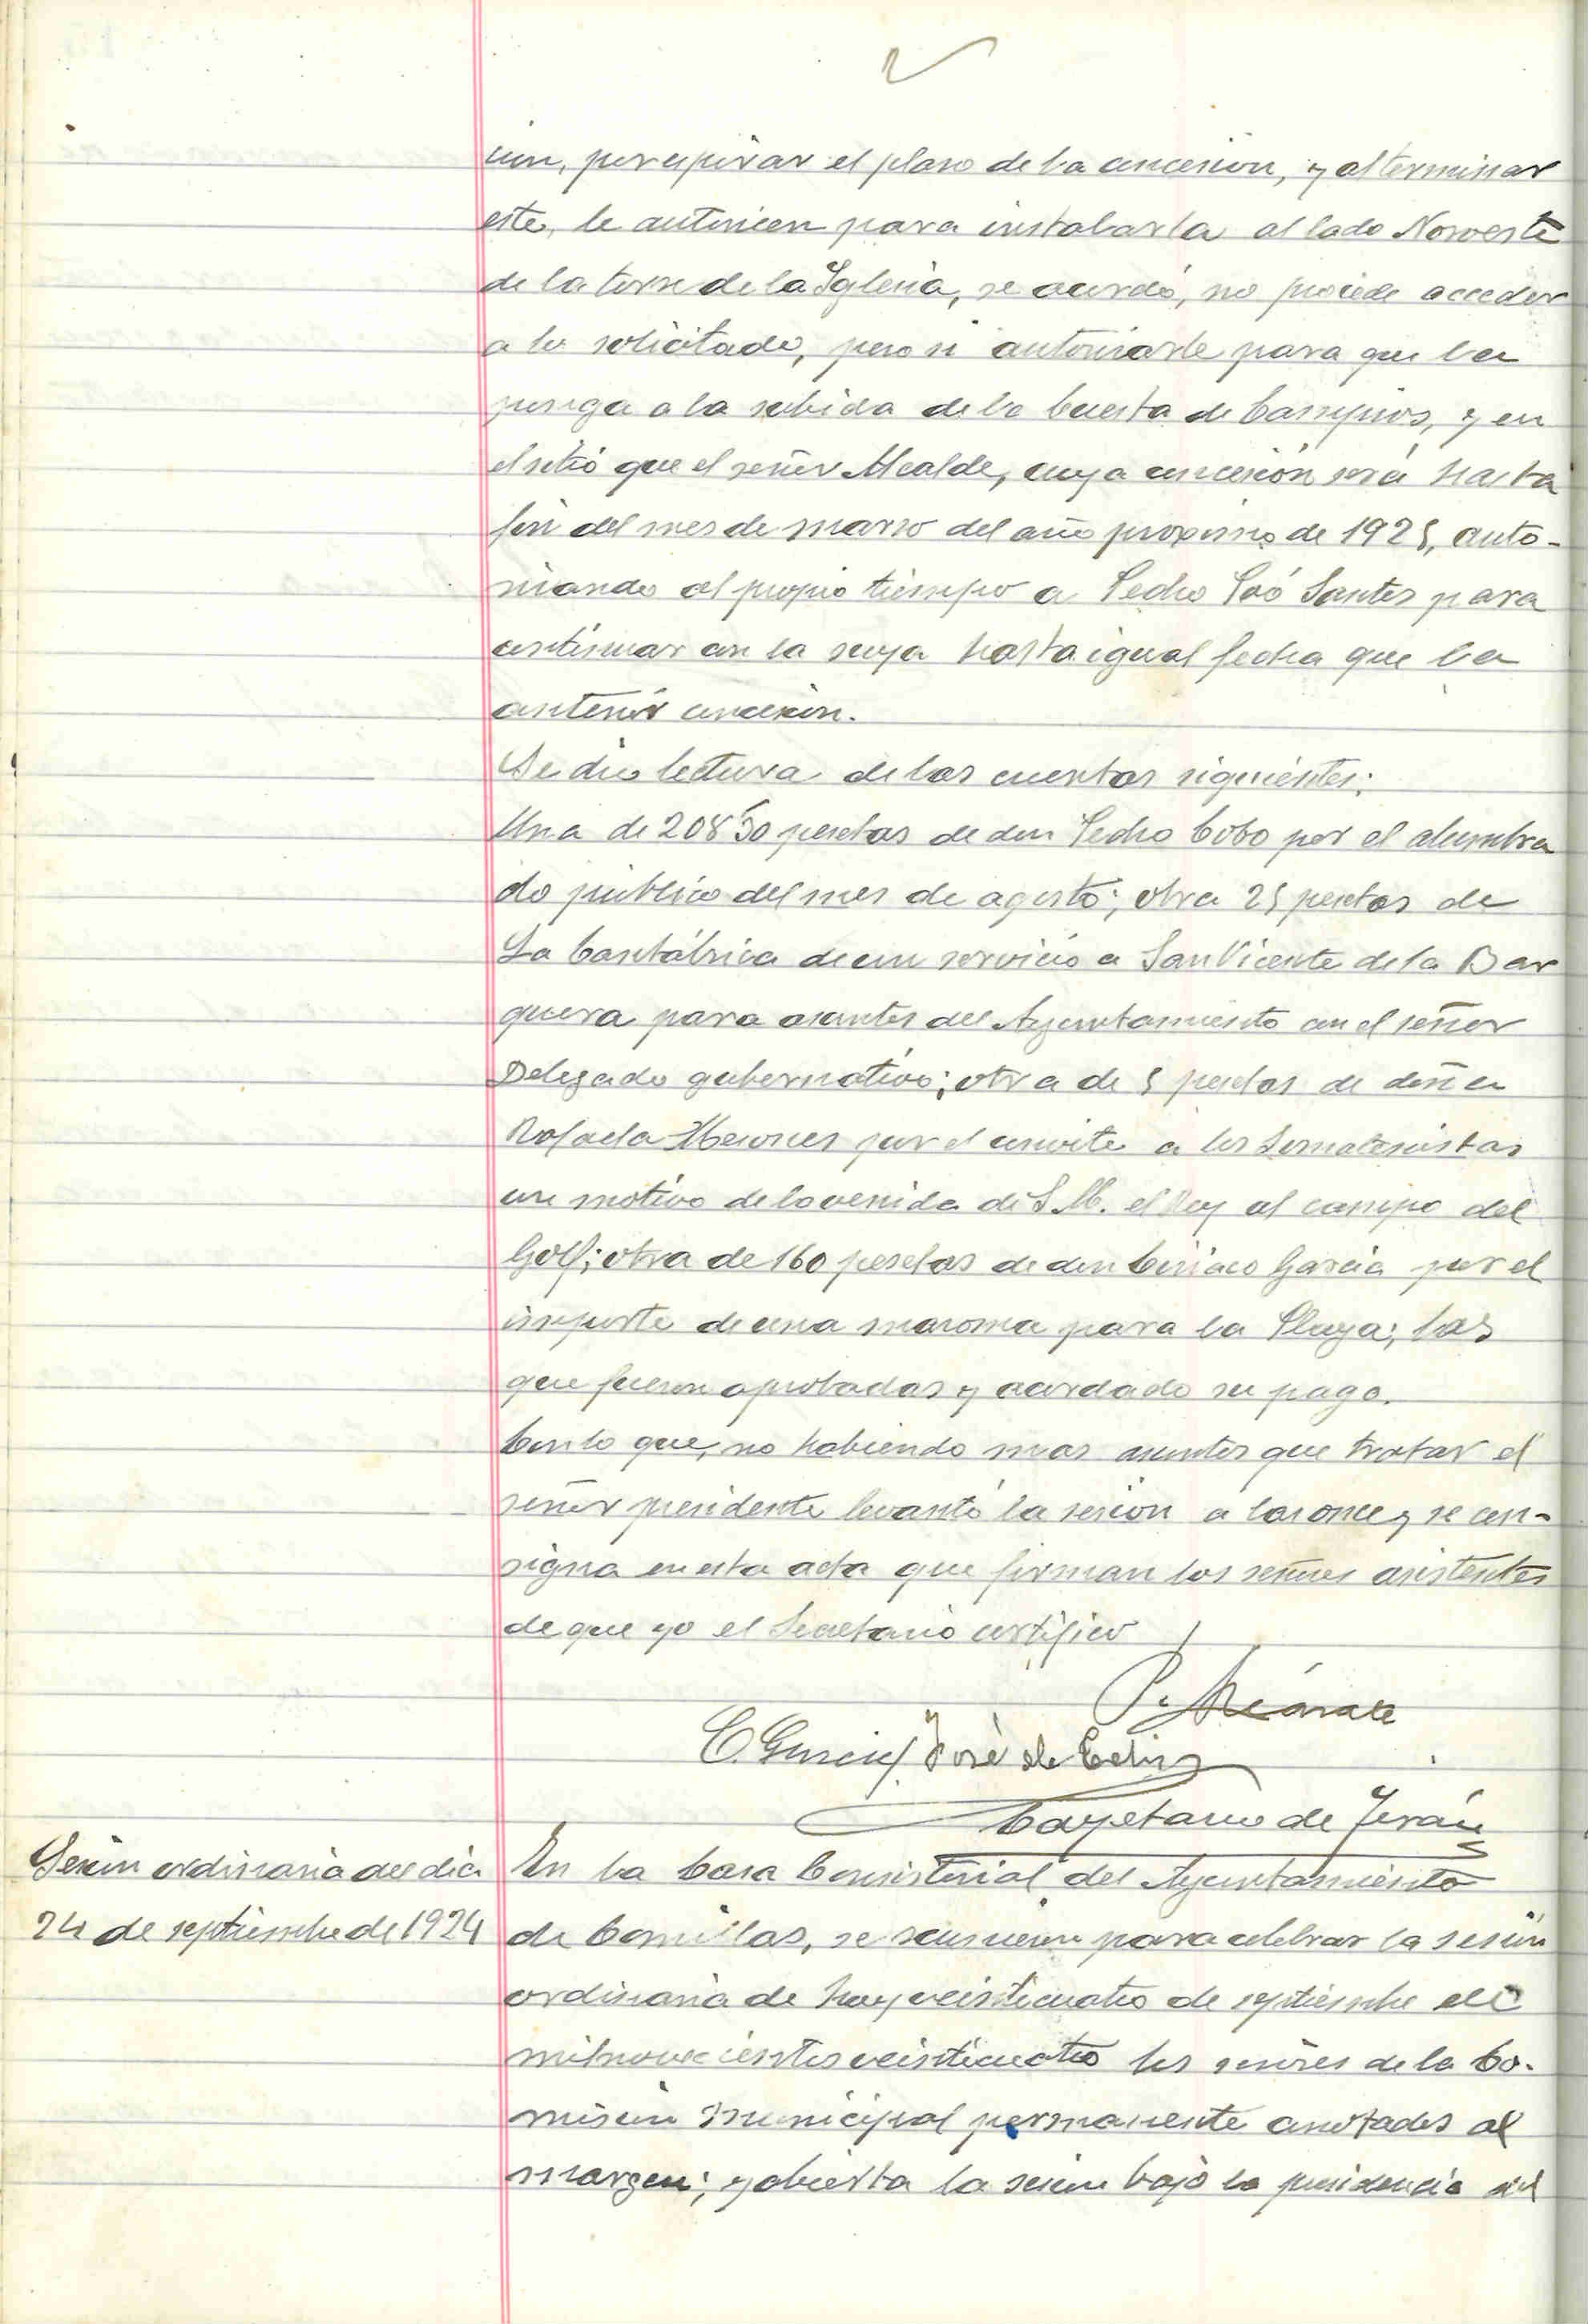 cion, por espirar el plazo de la concesion, y al terminar
este, le autoricen para instalarla al lado Noroeste
de la torre de la Iglesia, se acordó, no procede acceder
a lo solicitado, pero si autorizarle para que la
ponga a la subida de la Cuesta de Campíos, y en
el sitio que el señor Alcalde, cuya concesión será hasta
fin del mes de marzo del año proximo de 1925, auto-
rizando al propio tiempo a Pedro Poó Santos para
continuar con la suya hasta igual fecha que la
anterior concesion.
Se dio lectura de las cuentas siguientes:
Una de 208'50 pesetas de don Pedro Cobo por el alumbra
do público del mes de agosto; otra 25 pesetas de
La Cantábrica de un servicio a San Vicente de la Bar
quera para asuntos del Ayuntamiento con el señor
Delegado gubernativo; otra de 5 pesetas de doña
Rafaela por el convite a los Somatenistas
con motivo de la venida de S. M. el Rey al campo del
Golf; otra de 160 pesetas de don Ciriaco Garcia por el
importe de una maroma para la Playa; las
que fueron aprobadas y acordado su pago.
Con lo que, no habiendo mas asuntos que tratar el
señor presidente levantó la sesion a las once y se con-
signa en esta acta que firman los señores asistentes
de que yo el Secretario certifico
P.
C. Garcia José de Celis
Cayetano de Terán
Sesion ordinaria del dia
24 de septiembre de 1924
En la Casa Consistorial del Ayuntamiento
de Comillas, se reunieron para celebrar la sesion
ordinaria de hoy veinticuatro de septiembre de
mil novecientos veinticuatro los señores de la Co-
mision Municipal permanente anotados al
margen; y abierta la sesion bajo la presidencia del